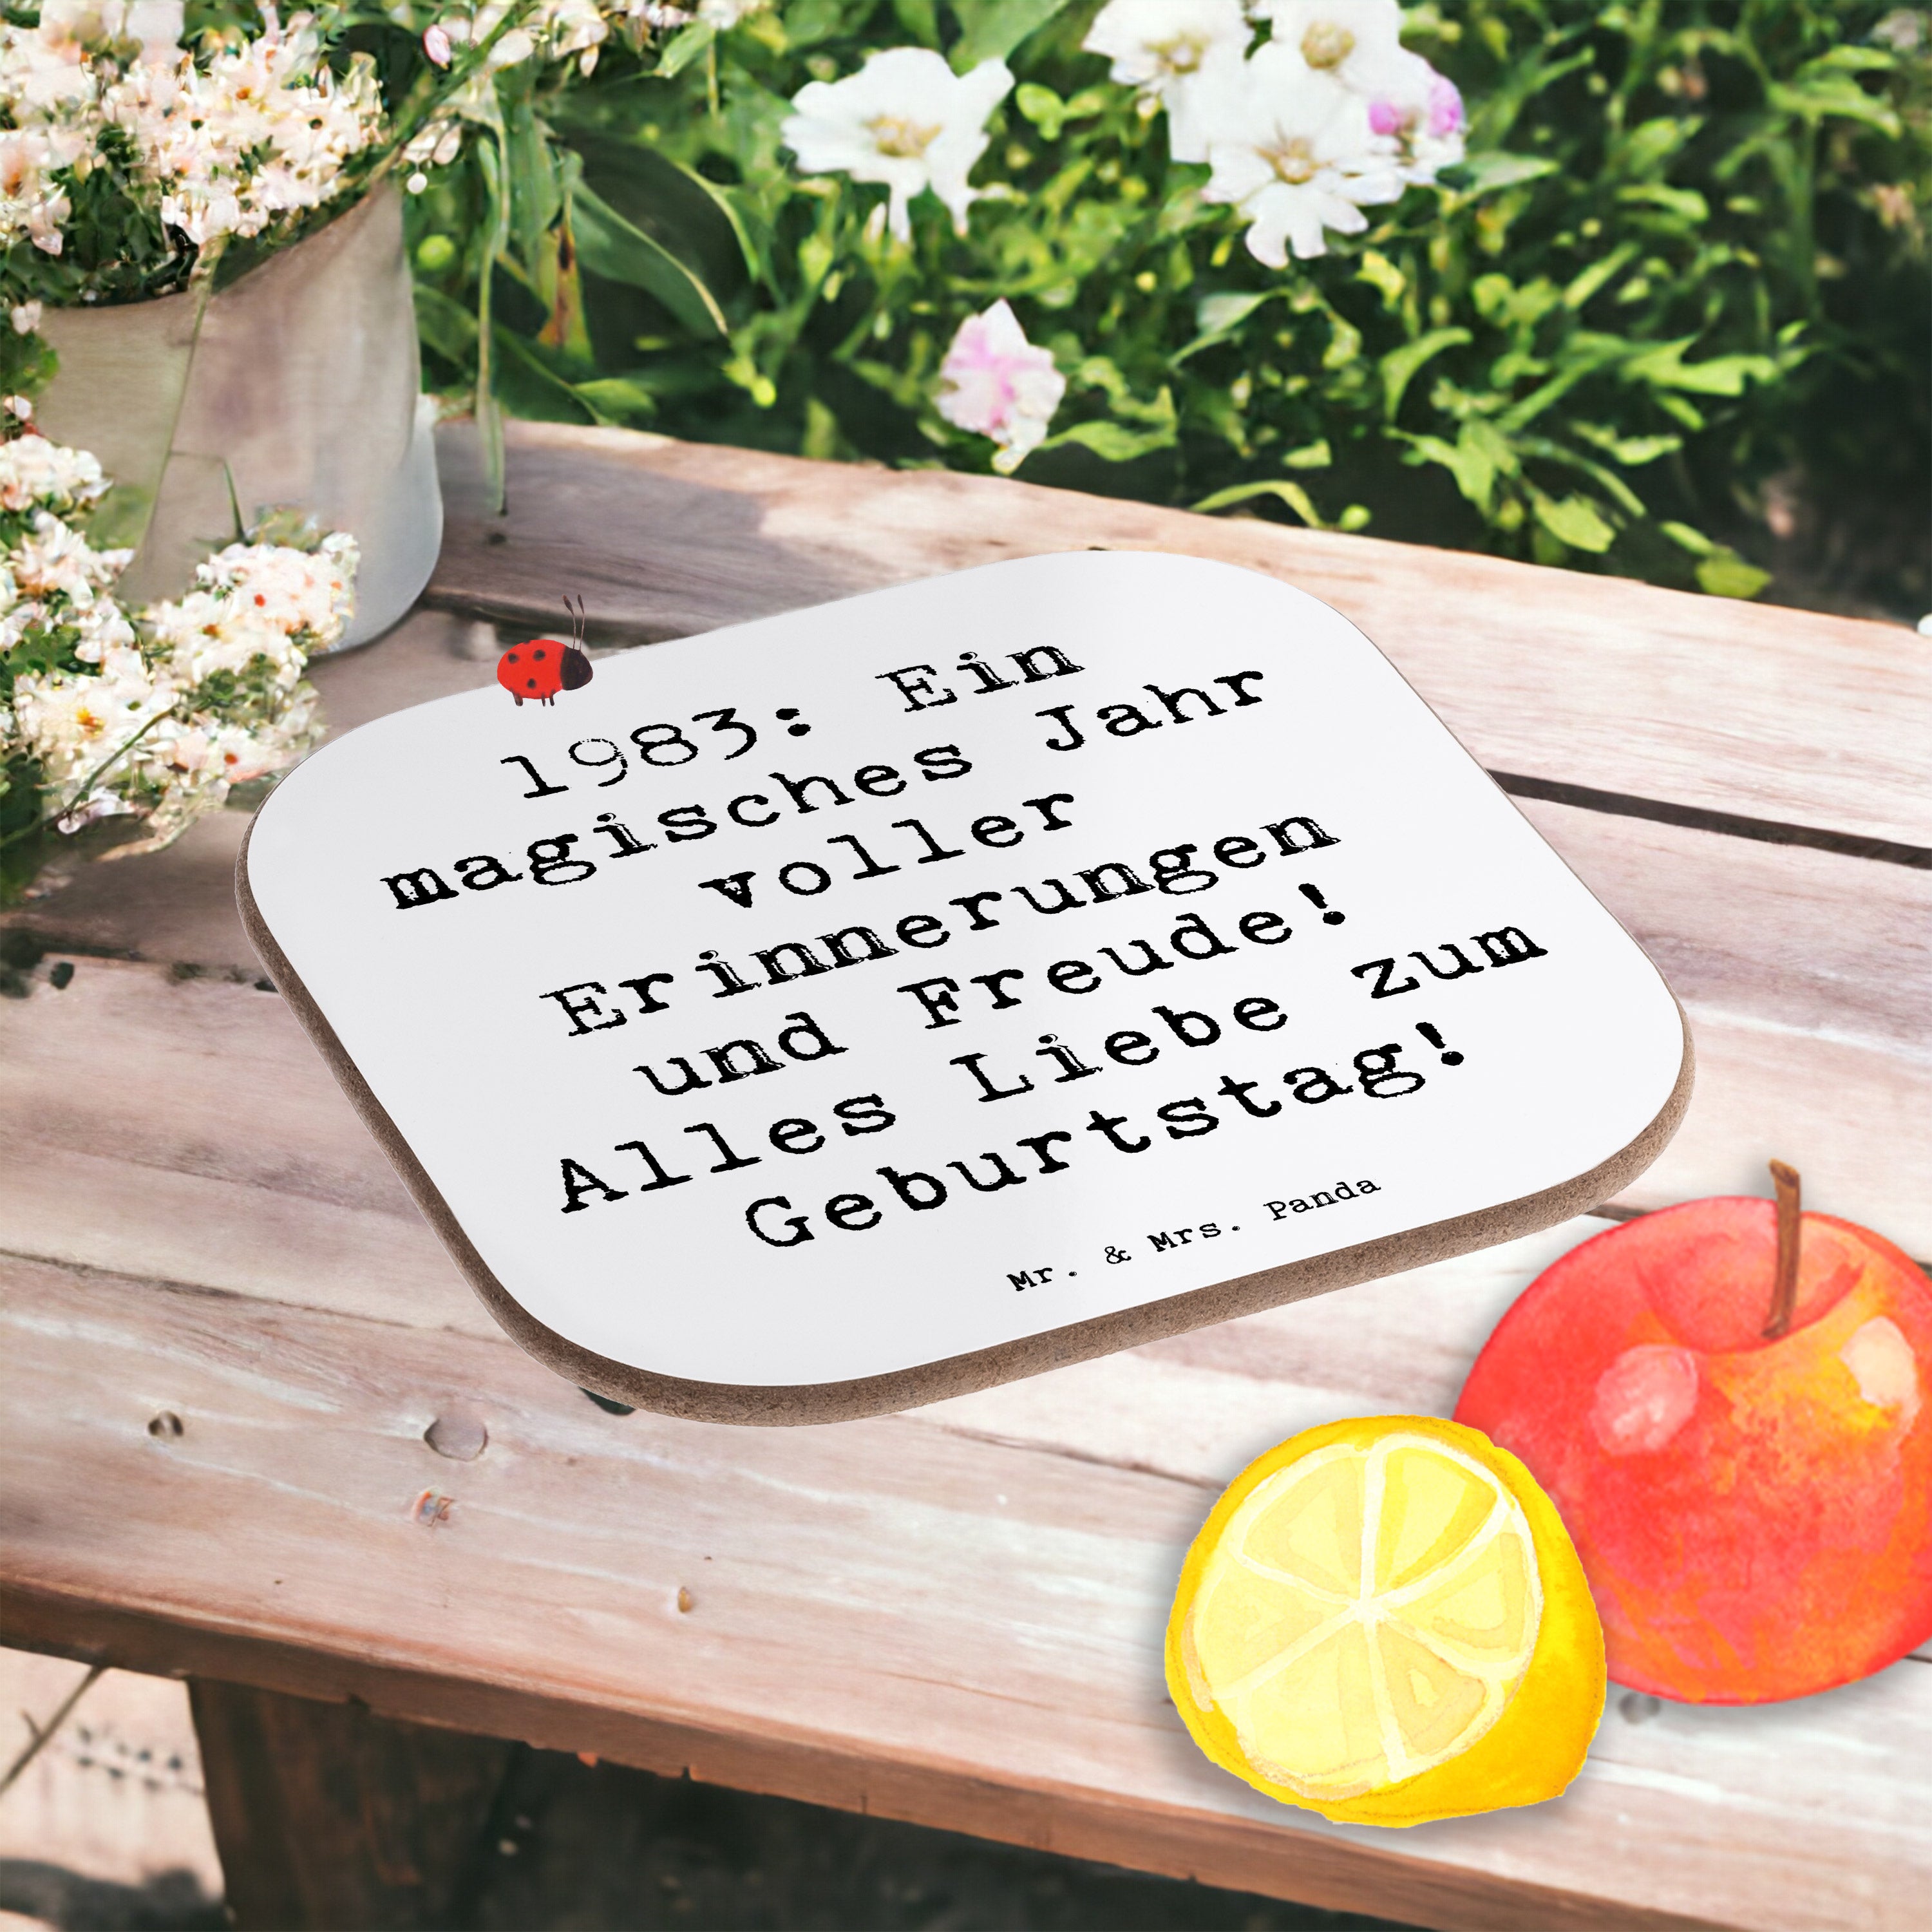 1983: Ein
magisches Jahr
voller
Erinnerungen
und Freude!
Alles Liebe zum
Geburtstag!
Mr. & Mrs. Panda